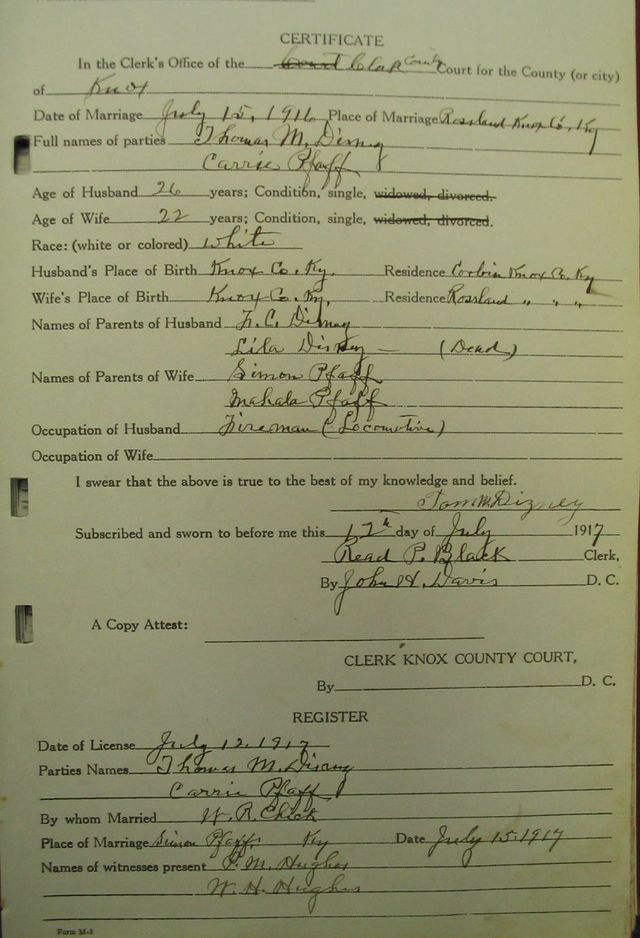 CERTIFICATE
In the Clerk's Office of the Clerk County Court for the County (or city)
of Knox
Date of Marriage July 15, 1916 Place of Marriage Rossland Knox Co, Ky
Full names of parties Thomas M. Disney
Carrie Pfaff
Age of Husband 26 years; Condition, single, widowed, divorced.
Age of Wife 22 years; Condition, single, widowed, divorced.
Race: (white or colored) White
Husband's Place of Birth Knox Co. Ky. Residence Corbin Knox Co. Ky
Wife's Place of Birth Knox Co. Ky, Residence Rossland " " "
Names of Parents of Husband F. C. Disney
Lila Disney — (Dead)
Names of Parents of Wife Simon Pfaff
Mahala Pfaff
Occupation of Husband Fireman (Locomotive)
Occupation of Wife
I swear that the above is true to the best of my knowledge and belief.
Tom M Dizney
Subscribed and sworn to before me this 12th day of July 1917
Read P. Black Clerk,
By John H. Davis D. C.
A Copy Attest:
CLERK KNOX COUNTY COURT,
By D. C.
REGISTER
Date of License July 12, 1917
Parties Names Thomas M. Disney
Carrie Pfaff
By whom Married W. R. Chick
Place of Marriage Simon Pfaff Ky Date July 15, 1917
Names of witnesses present P. M. Hughes
W. H. Hughes
Form M-2